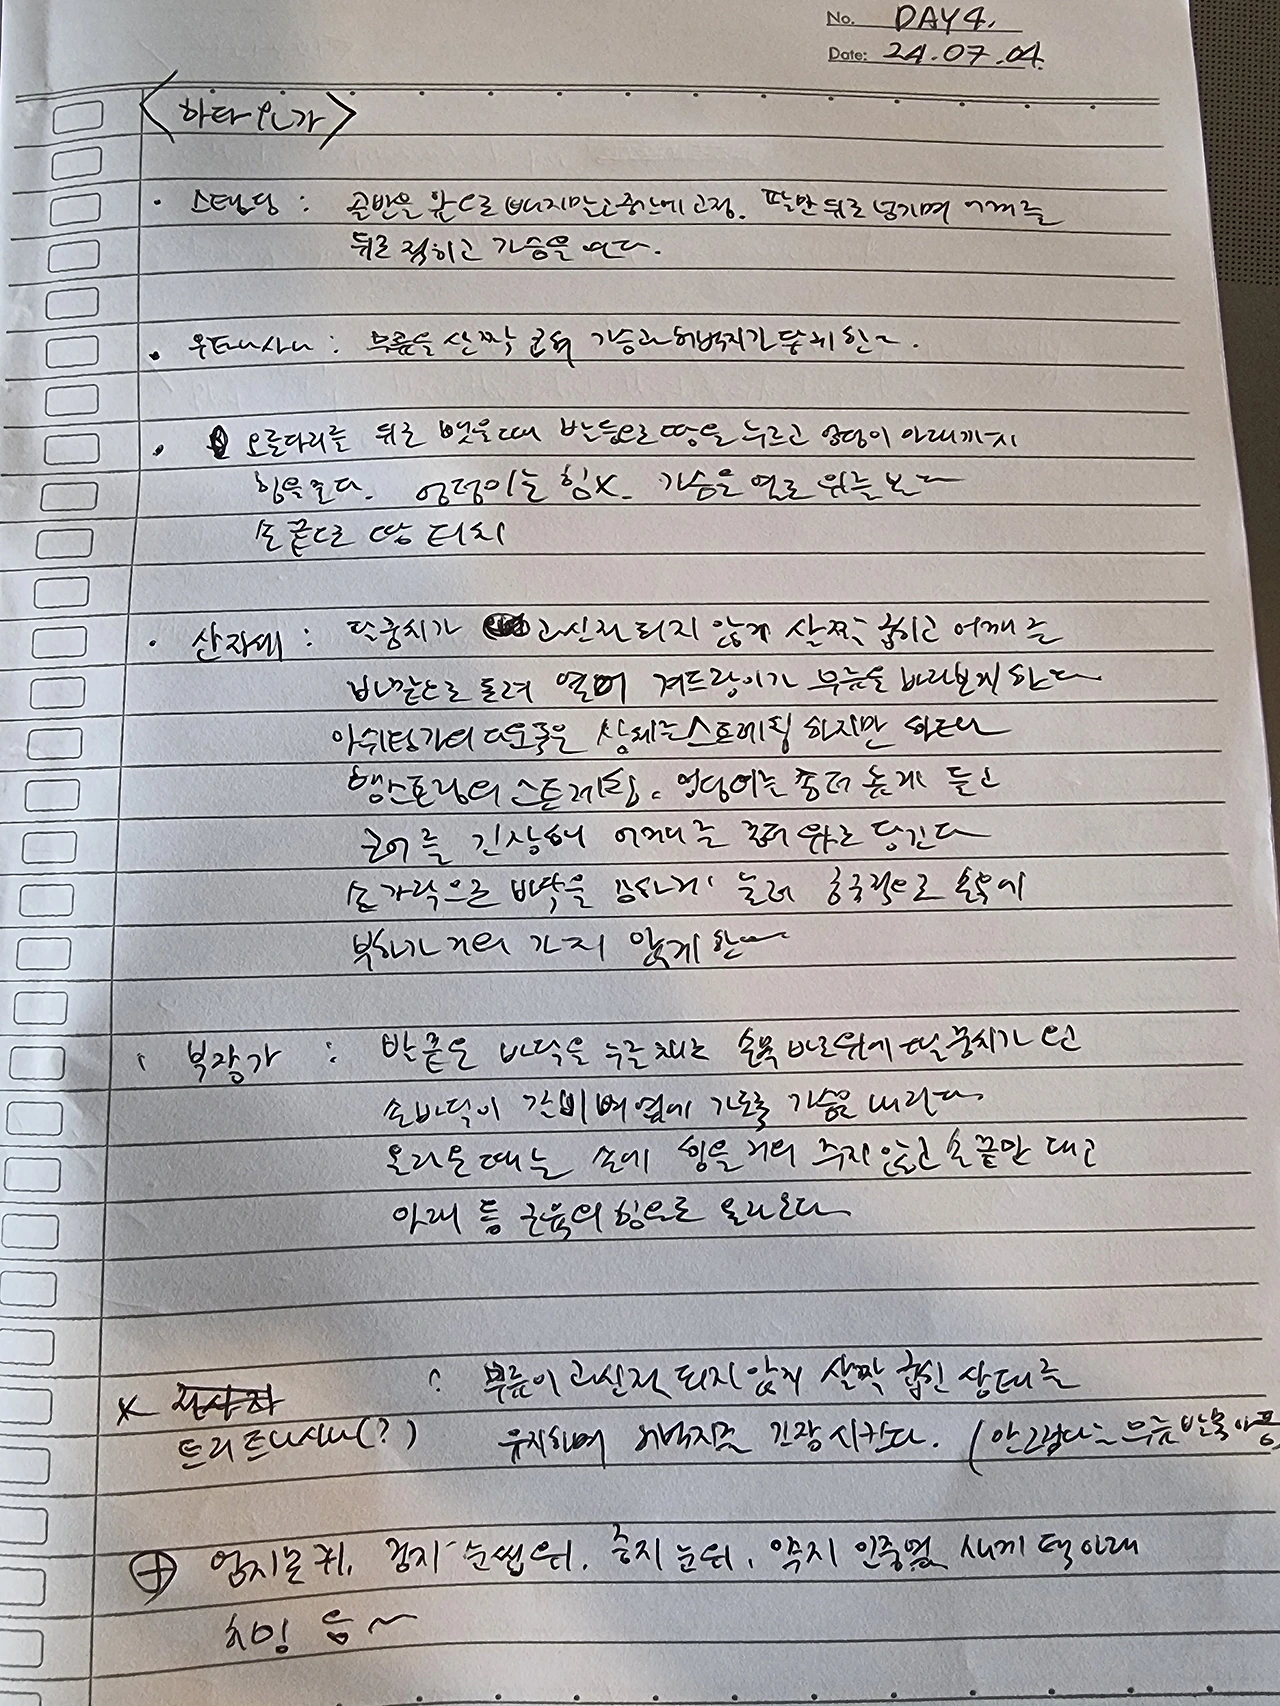 No. DAY4.
Date: 24.07.04.
<하타요가>
· 스탠딩 : 골반을 앞으로 빼지말고 중간에 고정. 팔만 뒤로 넘기며 어깨를
뒤로 젖히고 가슴을 연다.
· 우타나사나 : 무릎을 살짝 굽혀 가슴과 허벅지가 닿게 한다.
· 오른다리를 뒤로 뻗을때 발등으로 땅을 누르고 엉덩이 아래까지
힘을준다. 엉덩이는 힘x. 가슴을 열고 위를 본다
손끝으로 땅 터치
· 산자세 : 팔꿈치가 과신전 되지 않게 살짝 굽히고 어깨를
바깥으로 돌려 열며 겨드랑이가 무릎을 바라보게 한다
아쉬탕가의 다운독은 상체는 스트레칭 하지만 하타는
햄스트링의 스트레칭. 엉덩이는 좀더 높게 들고
코어를 긴장해 어깨를 좀더 위로 당긴다
손가락으로 바닥을 강하게 눌러 궁극적으로 손목에
부하가 거의 가지 않게 한다
· 부장가 : 발등은 바닥을 누른채로 손목 바로위에 팔꿈치가 오고
손바닥이 갈비뼈 옆에 가도록 가슴을 내린다
올라올때는 손에 힘을 거의 주지 않고 손끝만 대고
아래 등 근육의 힘으로 올라온다
x : 무릎이 과신전 되지 않게 살짝 굽힌 상태를
트리트나사나(?) 유지하며 허벅지를 긴장 시킨다. (안그런다는 무릎 반복 아픔
⊕ 엄지는 귀, 검지 눈썹위, 중지 눈위, 약지 인중옆 새끼 턱아래
허밍 음~